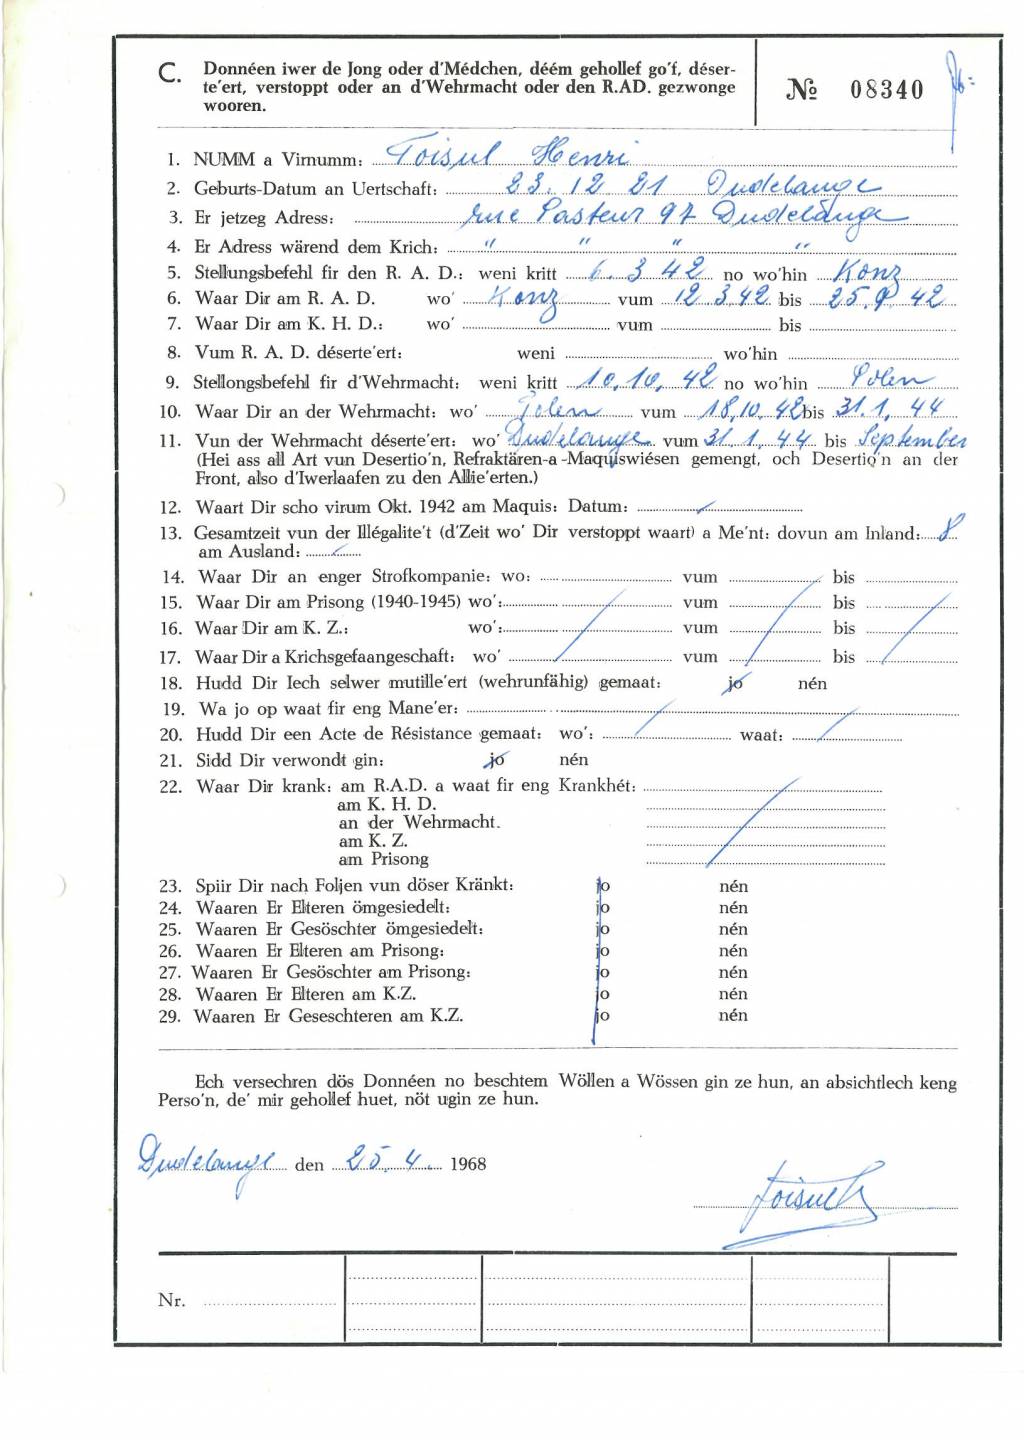 C. Donnéen iwer de Jong oder d'Médchen, déém gehollef go'f, déser-
te'ert, verstoppt oder an d'Wehrmacht oder den R.AD. gezwonge
wooren.
№ 08340
1. NUMM a Virnumm: Toisul Henri
2. Geburts-Datum an Uertschaft: 23. 12 21 Dudelange
3. Er jetzeg Adress: rue Pasteur 97 Dudelange
4. Er Adress wärend dem Krich: " " " "
5. Stellungsbefehl fir den R. A. D.: weni kritt 6. 3 42 no wo'hin Konz
6. Waar Dir am R. A. D. wo' Konz vum 12 3.42 bis 25. 9 42
7. Waar Dir am K. H. D.: wo' vum bis
8. Vum R. A. D. déserte'ert: weni wo'hin
9. Stellongsbefehl fir d'Wehrmacht: weni kritt 10. 10. 42 no wo'hin Polen
10. Waar Dir an der Wehrmacht: wo' Polen vum 18.10. 42 bis 31. 1. 44
11. Vun der Wehrmacht déserte'ert: wo' Dudelange vum 31. 1. 44 bis September
(Hei ass all Art vun Desertio'n, Refraktären-a-Maquiswiésen gemengt, och Desertio'n an der
Front, also d'Iwerlaafen zu den Allie'erten.)
12. Waart Dir scho virum Okt. 1942 am Maquis: Datum:
13. Gesamtzeit vun der Illégalite't (d'Zeit wo' Dir verstoppt waart) a Me'nt: dovun am Inland: 8
am Ausland:
14. Waar Dir an enger Strofkompanie: wo: vum bis
15. Waar Dir am Prisong (1940-1945) wo': vum bis
16. Waar Dir am K. Z.: wo': vum bis
17. Waar Dir a Krichsgefaangeschaft: wo' vum bis
18. Hudd Dir Iech selwer mutille'ert (wehrunfähig) gemaat: jo nén
19. Wa jo op waat fir eng Mane'er:
20. Hudd Dir een Acte de Résistance gemaat: wo': waat:
21. Sidd Dir verwondt gin: jo nén
22. Waar Dir krank: am R.A.D. a waat fir eng Krankhét:
am K. H. D.
an der Wehrmacht.
am K. Z.
am Prisong
23. Spiir Dir nach Foljen vun döser Kränkt: jo nén
24. Waaren Er Elteren ömgesiedelt: jo nén
25. Waaren Er Gesöschter ömgesiedelt: jo nén
26. Waaren Er Elteren am Prisong: jo nén
27. Waaren Er Gesöschter am Prisong: jo nén
28. Waaren Er Elteren am K.Z. jo nén
29. Waaren Er Geseschteren am K.Z. jo nén
Ech versechren dös Donnéen no beschtem Wöllen a Wössen gin ze hun, an absichtlech keng
Perso'n, de' mir gehollef huet, nöt ugin ze hun.
Dudelange den 25. 4. 1968
Nr.